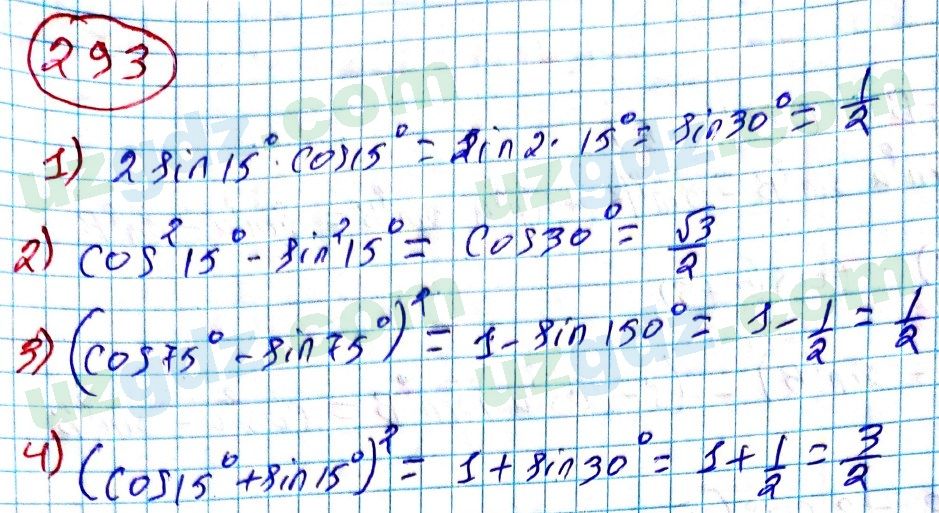 293
1) 2 sin 15° · cos 15° = sin 2 · 15° = sin 30° = 1/2
2) cos² 15° - sin² 15° = cos 30° = √3/2
3) (cos 75° - sin 75°)² = 1 - sin 150° = 1 - 1/2 = 1/2
4) (cos 15° + sin 15°)² = 1 + sin 30° = 1 + 1/2 = 3/2
uzgdz.com
uzgdz.com
uzgdz.com
uzgdz.com